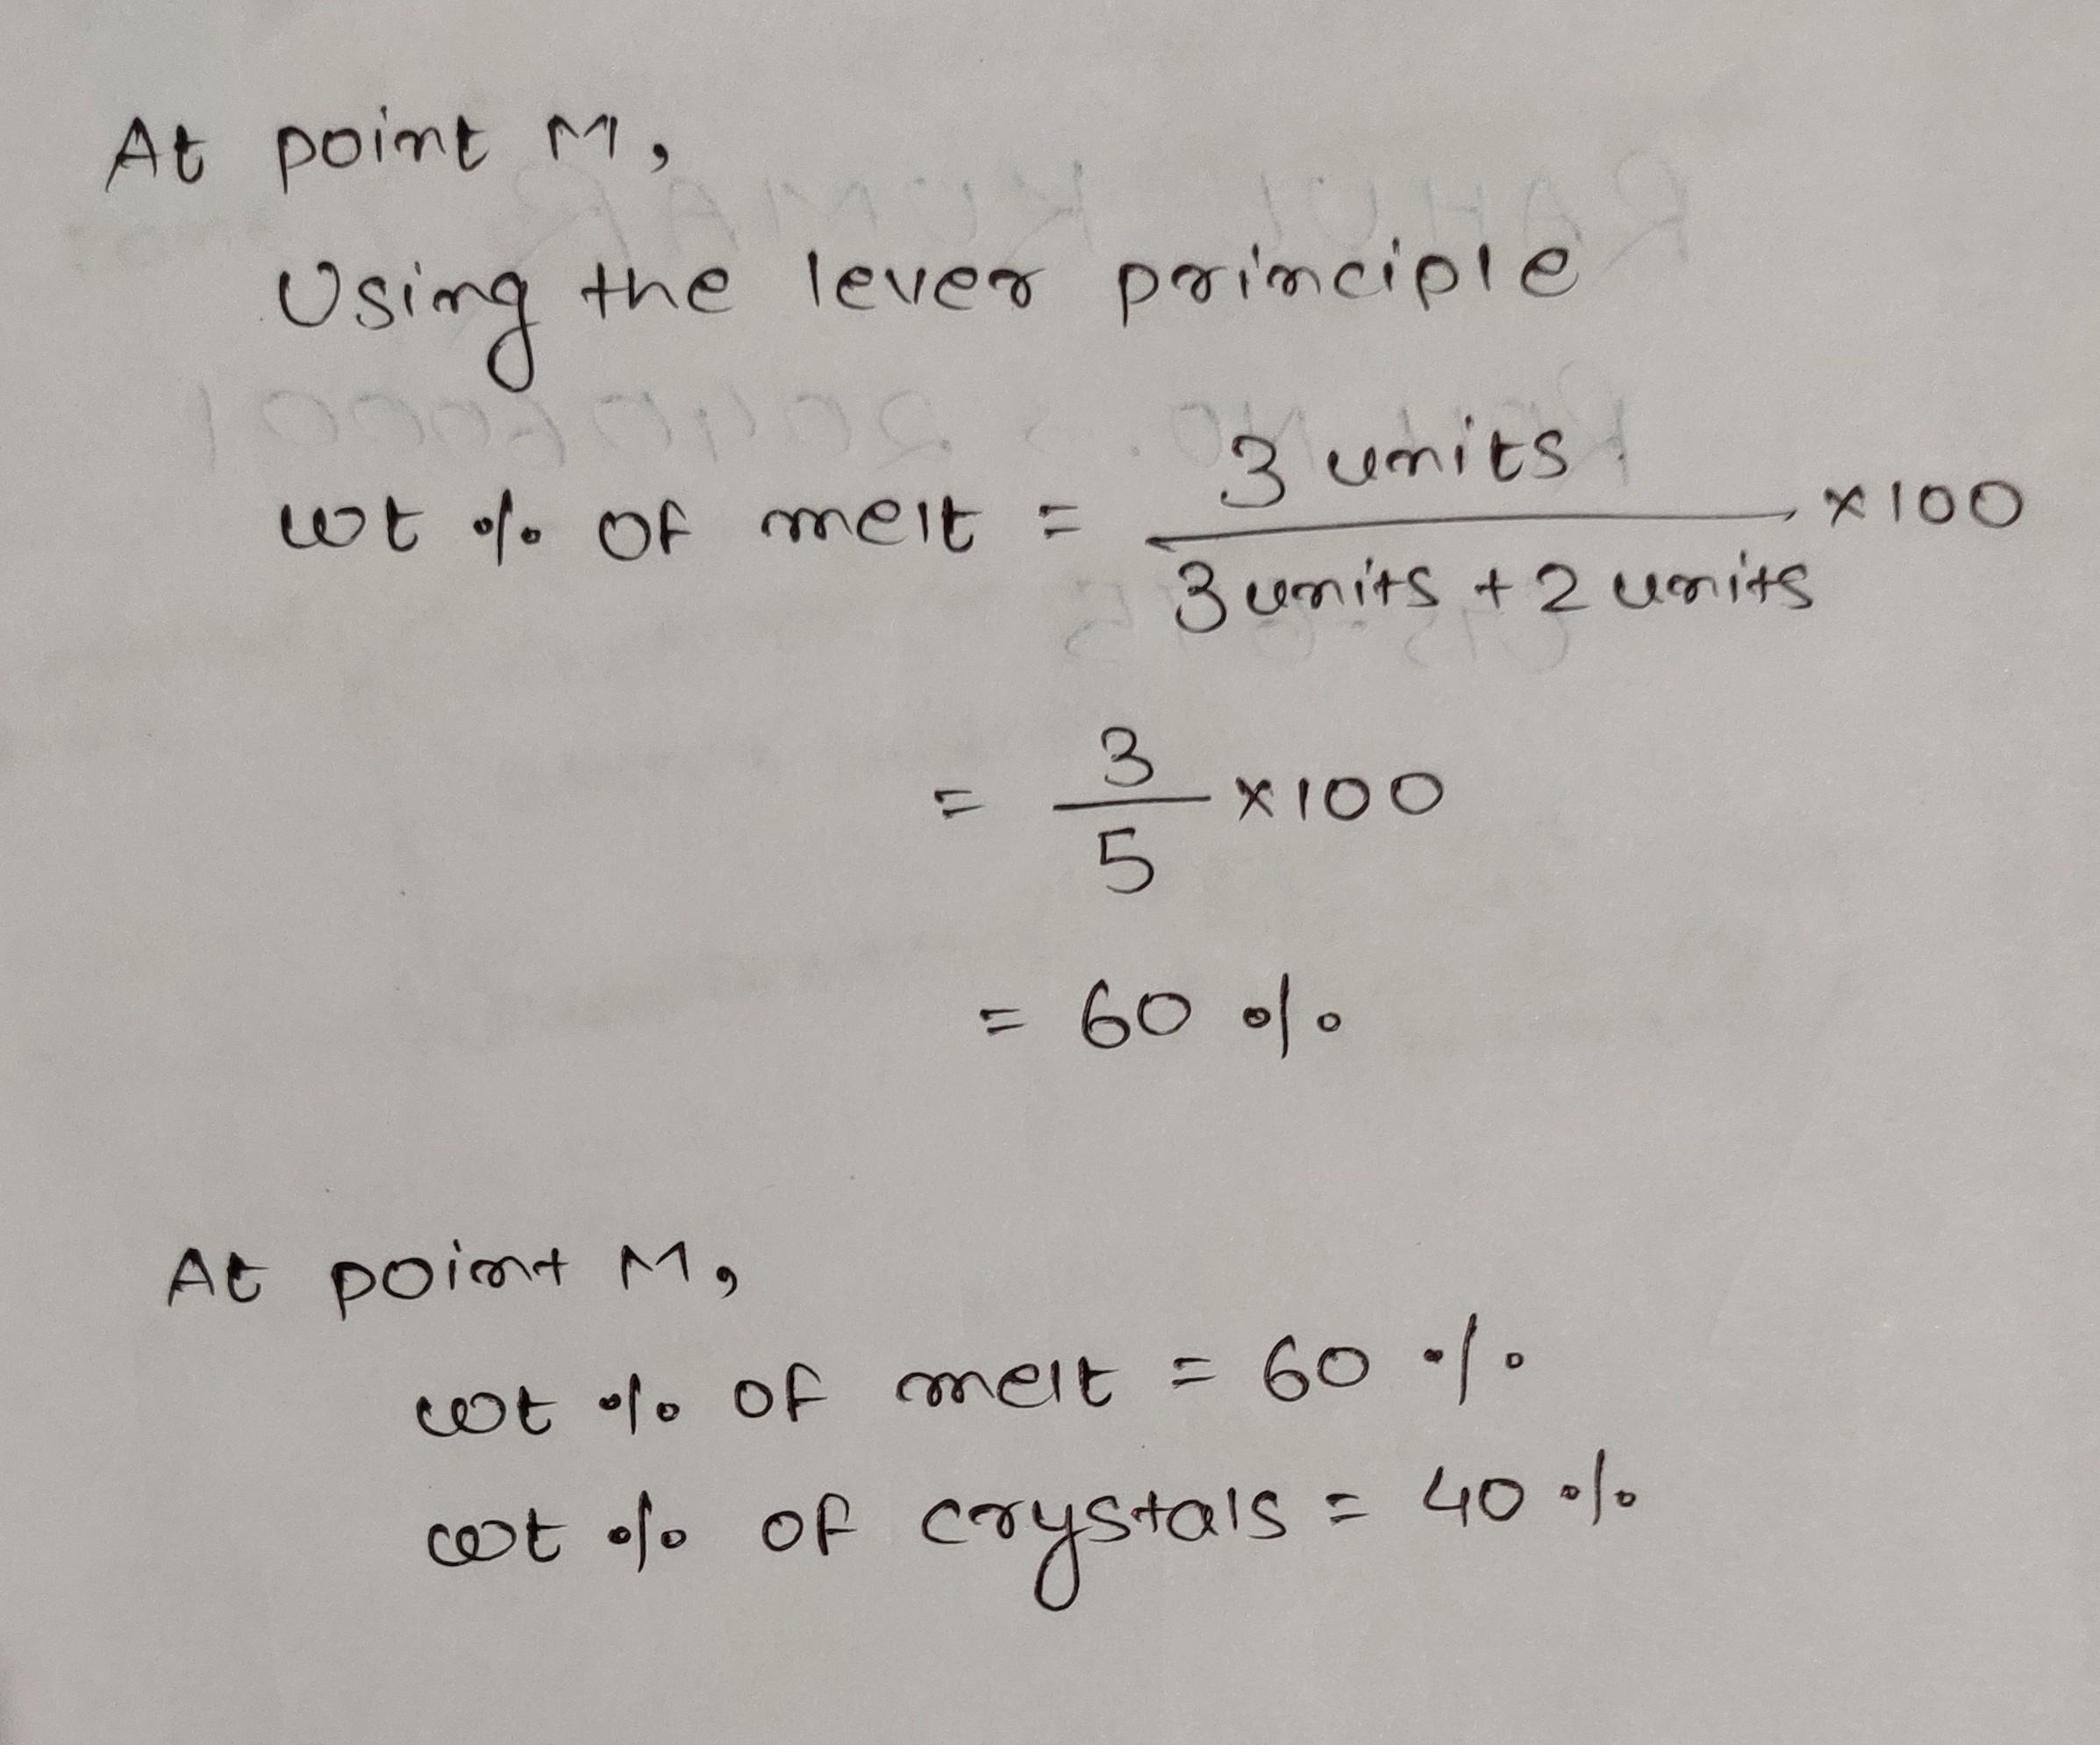 At point M,
Using the lever principle
wt % of melt = 3 units / 3 units + 2 units × 100
= 3/5 × 100
= 60 %
At point M,
wt % of melt = 60 %
wt % of crystals = 40 %